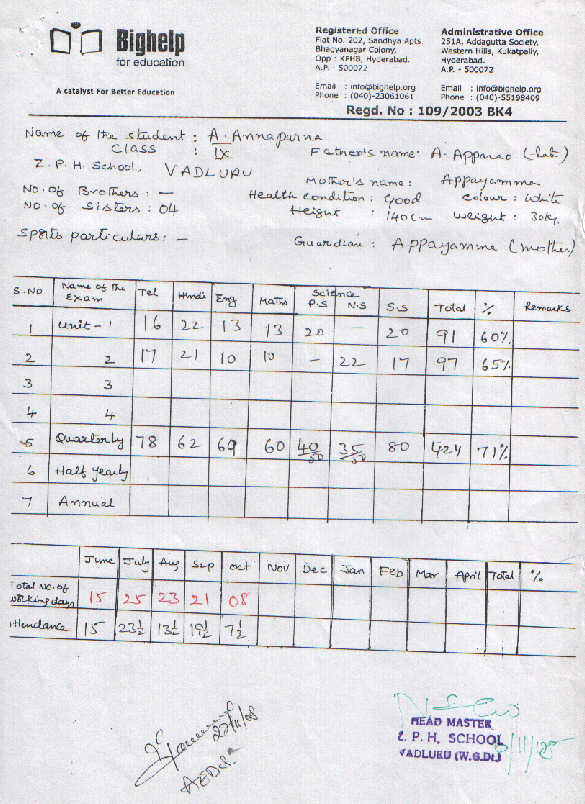 Bighelp
for education
A catalyst For Better Education
Registered Office
Flat No. 202, Sandhya Apts.
Bhagyanagar Colony,
Opp : KPHB, Hyderabad.
A.P. - 500072
Email : info@bighelp.org
Phone : (040)-23061061
Administrative Office
251A, Addagutta Society,
Western Hills, Kukatpally,
Hyderabad.
A.P. - 500072
Email : info@bighelp.org
Phone : (040)-55198409
Regd. No : 109/2003 BK4
Name of the student : A. Annapurna
CLASS : IX Father's name: A. Apparao (Lat.)
Z. P. H. School, VADLURU Mother's name : Appayamma
No. of Brothers : — Health condition : Good colour : White
No. of Sisters : 04 Height : 140cm weight : 30kg.
Sports particulars : — Guardian : APPayamma (mother)
S.NO Name of the Exam Tel Hindi Eng Maths Science P.S N.S S.S Total % Remarks
1 Unit-1 16 22 13 13 20 — 20 91 60%
2 2 17 21 10 10 — 22 17 97 65%
3 3
4 4
5 Quarterly 78 62 69 60 40/50 35/50 80 424 71%
6 Half yearly
7 Annual
June July Aug Sep Oct Nov Dec Jan Feb Mar April Total %
Total No. of working days 15 25 23 21 08
Attendance 15 23½ 13½ 19½ 7½
HEAD MASTER
Z. P. H. SCHOOL
VADLURU (W.G.Dt.)